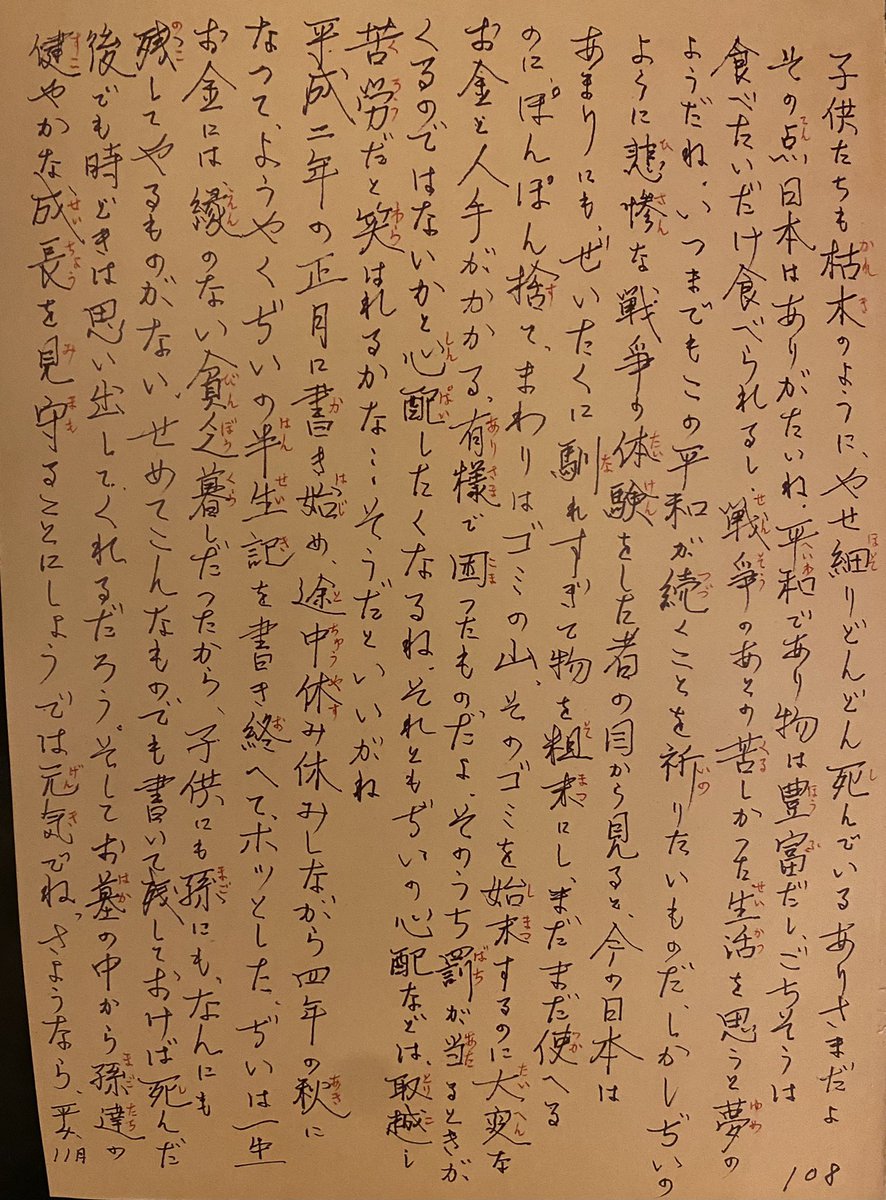 108
子供たちも枯木のように、やせ細りどんどん死んでいるありさまだよ
その点日本はありがたいね、平和であり物は豊富だし、ごちそうは
食べたいだけ食べられるし、戦争のあとの苦しかった生活を思うと夢の
ようだね、いつまでもこの平和が続くことを祈りたいものだ、しかしぢいの
ように悲惨な戦争の体験をした者の目から見ると、今の日本は
あまりにも、ぜいたくに馴れすぎて物を粗末にし、まだまだ使へる
のに、ぽんぽん捨て、まわりはゴミの山、そのゴミを始末するのに大変な
お金と人手がかかる、有様で困ったものだよ、そのうち罰が当るときが、
くるのではないかと心配したくなるね、それともぢいの心配などは、取越し
苦労だと笑はれるかな…そうだといいがね
平成二年の正月に書き始め、途中休み休みしながら四年の秋に
なって、ようやくぢいの半生記を書き終へて、ホッとした、ぢいは一生
お金には縁のない貧乏暮しだったから、子供にも孫にも、なんにも
残してやるものがない、せめてこんなものでも書いて残しておけば死んだ
後でも時どきは思い出してくれるだろう。そしてお墓の中から孫達の
健やかな成長を見守ることにしよう では元気でね、さようなら、平4、11月